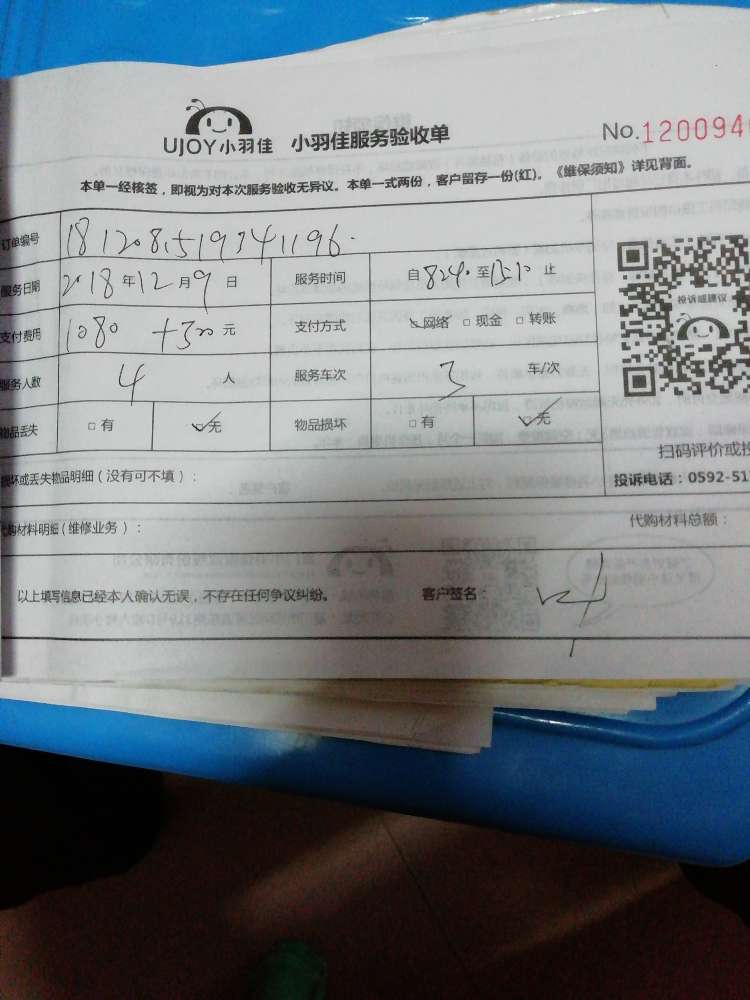 UJOY小羽佳 小羽佳服务验收单 No.120094
本单一经核签，即视为对本次服务验收无异议。本单一式两份，客户留存一份(红)。《维保须知》详见背面。
订单编号 181208519341196
服务日期 2018年12月9日 服务时间 自8240至13:10止
支付费用 1080 +300元 支付方式 网络 □现金 □转账
服务人数 4人 服务车次 3 车/次
物品丢失 □有 ☑无 物品损坏 □有 ☑无
投诉或建议
扫码评价或投
损坏或丢失物品明细(没有可不填)：
投诉电话：0592-51
代购材料明细(维修业务)：
代购材料总额：
以上填写信息已经本人确认无误，不存在任何争议纠纷。 客户签名：